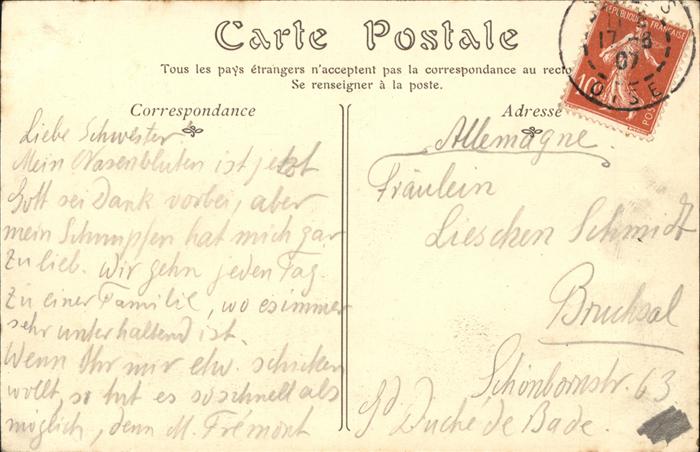 Carte Postale
Tous les pays étrangers n'acceptent pas la correspondance au recto
Se renseigner à la poste.
Correspondance
Liebe Schwester!
Mein Nasenbluten ist jetzt
Gott sei Dank vorbei, aber
mein Schnupfen hat mich gar
zu lieb. Wir gehn jeden Tag
zu einer Familie, wo es immer
sehr unterhaltend ist.
Wenn Ihr mir etw. schicken
wollt, so tut es so schnell als
möglich, denn M. Frémont
Adresse
Allemagne.
Fräulein
Lieschen Schmidt
Bruchsal
Schönbornstr. 63
Gd Duché de Bade.
REPUBLIQUE FRANÇAISE
10c
POSTES
17-8
07
OISE